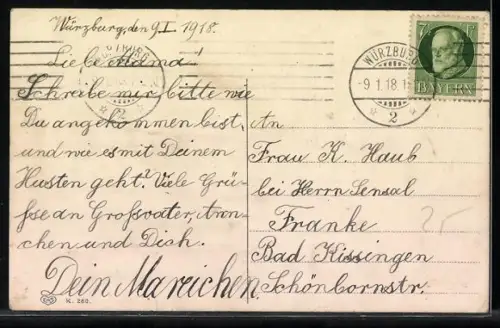 Würzburg, den 9.I. 1918.
Liebe Mama!
Schreibe mir bitte wie
Du angekommen bist,
und wie es mit Deinem
Husten geht? Viele Grü-
sse an Grossvater,
chen und Dich.
Dein Mareichen.
K. 283.
WÜRZBURG
-9.1.18.1
2
7 7
BAYERN
An
Frau K. Haub
bei Herrn Sensal
Franke
Bad Kissingen
Schönbornstr.
25